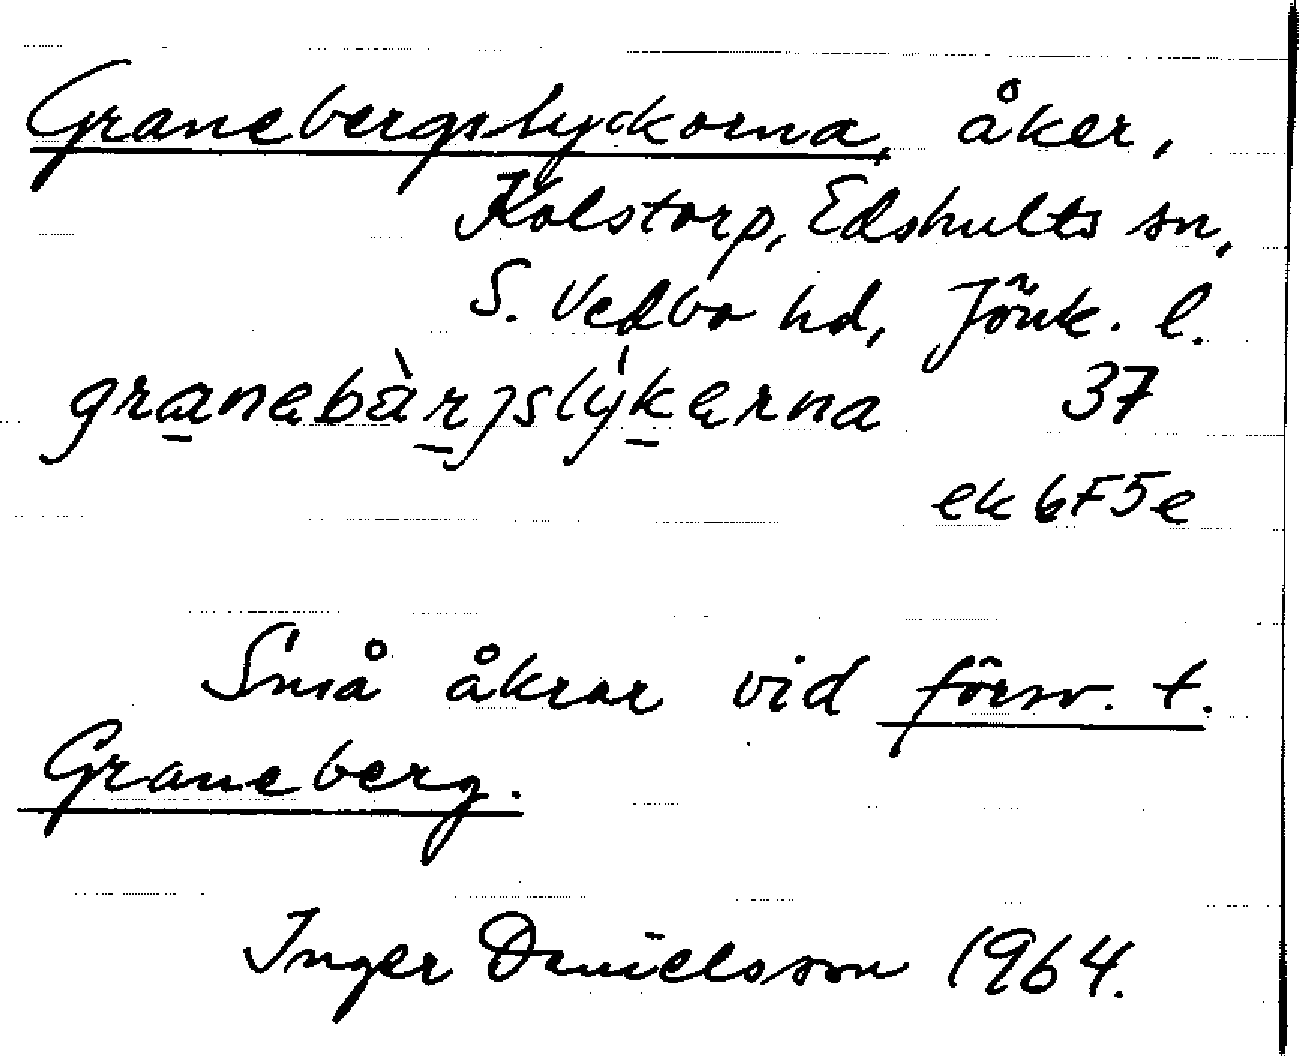 Granebergslyckorna, åker,
Kolstorp, Edshults sn,
S. Vedbo hd, Jönk. l.
granebàrgslýkerna 37
ek 6F5e
Små åkrar vid försv. t.
Graneberg.
Inger Danielsson 1964.